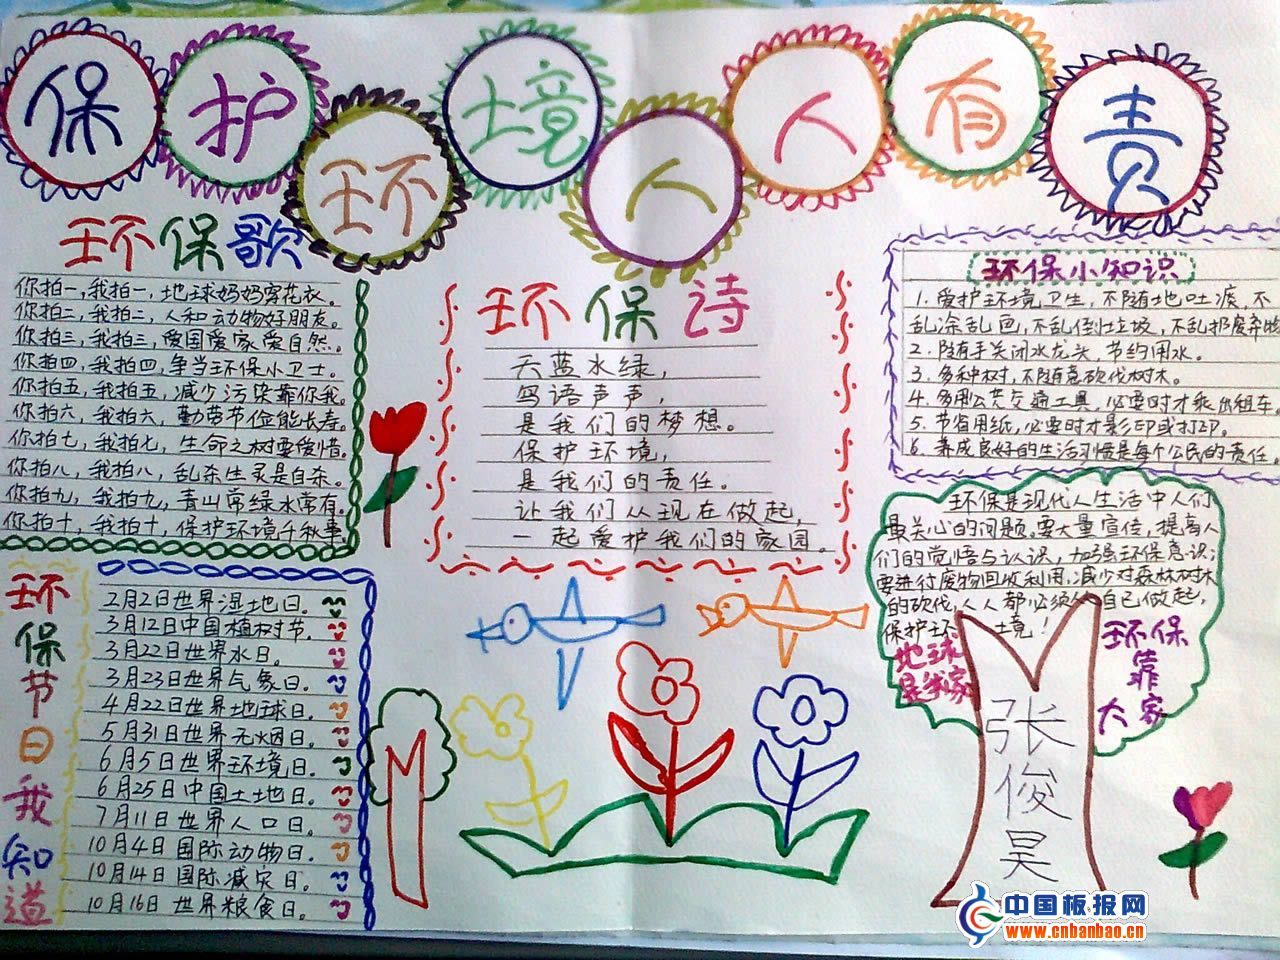 保护环境人人有责
环保歌
你拍一,我拍一,地球妈妈穿花衣。
你拍二,我拍二,人和动物好朋友。
你拍三,我拍三,爱国爱家爱自然。
你拍四,我拍四,争当环保小卫士。
你拍五,我拍五,减少污染靠你我。
你拍六,我拍六,勤劳节俭能长寿。
你拍七,我拍七,生命之树要爱惜。
你拍八,我拍八,乱杀生灵是自杀。
你拍九,我拍九,青山常绿水常有。
你拍十,我拍十,保护环境千秋事。
环保诗
天蓝水绿,
鸟语声声,
是我们的梦想。
保护环境,
是我们的责任。
让我们从现在做起,
一起爱护我们的家园。
环保小知识
1. 爱护环境卫生,不随地吐痰,不
乱涂乱画,不乱倒垃圾,不乱扔废弃物
2. 随手关闭水龙头,节约用水。
3. 多种树,不随意砍伐树木。
4. 多用公共交通工具,必要时才乘出租车。
5. 节省用纸,必要时才影印或打印。
6. 养成良好的生活习惯是每个公民的责任。
环保是现代人生活中人们
最关心的问题。要大量宣传,提高人
们的觉悟与认识,加强环保意识;
要进行废物回收利用,减少对森林树木
的砍伐,人人都必须从自己做起,
保护环境!
地球
是我家
环保
靠
大家
张俊昊
环保节日我知道
2月2日世界湿地日。
3月12日中国植树节。
3月22日世界水日。
3月23日世界气象日。
4月22日世界地球日。
5月31日世界无烟日。
6月5日世界环境日。
6月25日中国土地日。
7月11日世界人口日。
10月4日国际动物日。
10月14日国际减灾日。
10月16日世界粮食日。
中国板报网
www.cnbanbao.cn